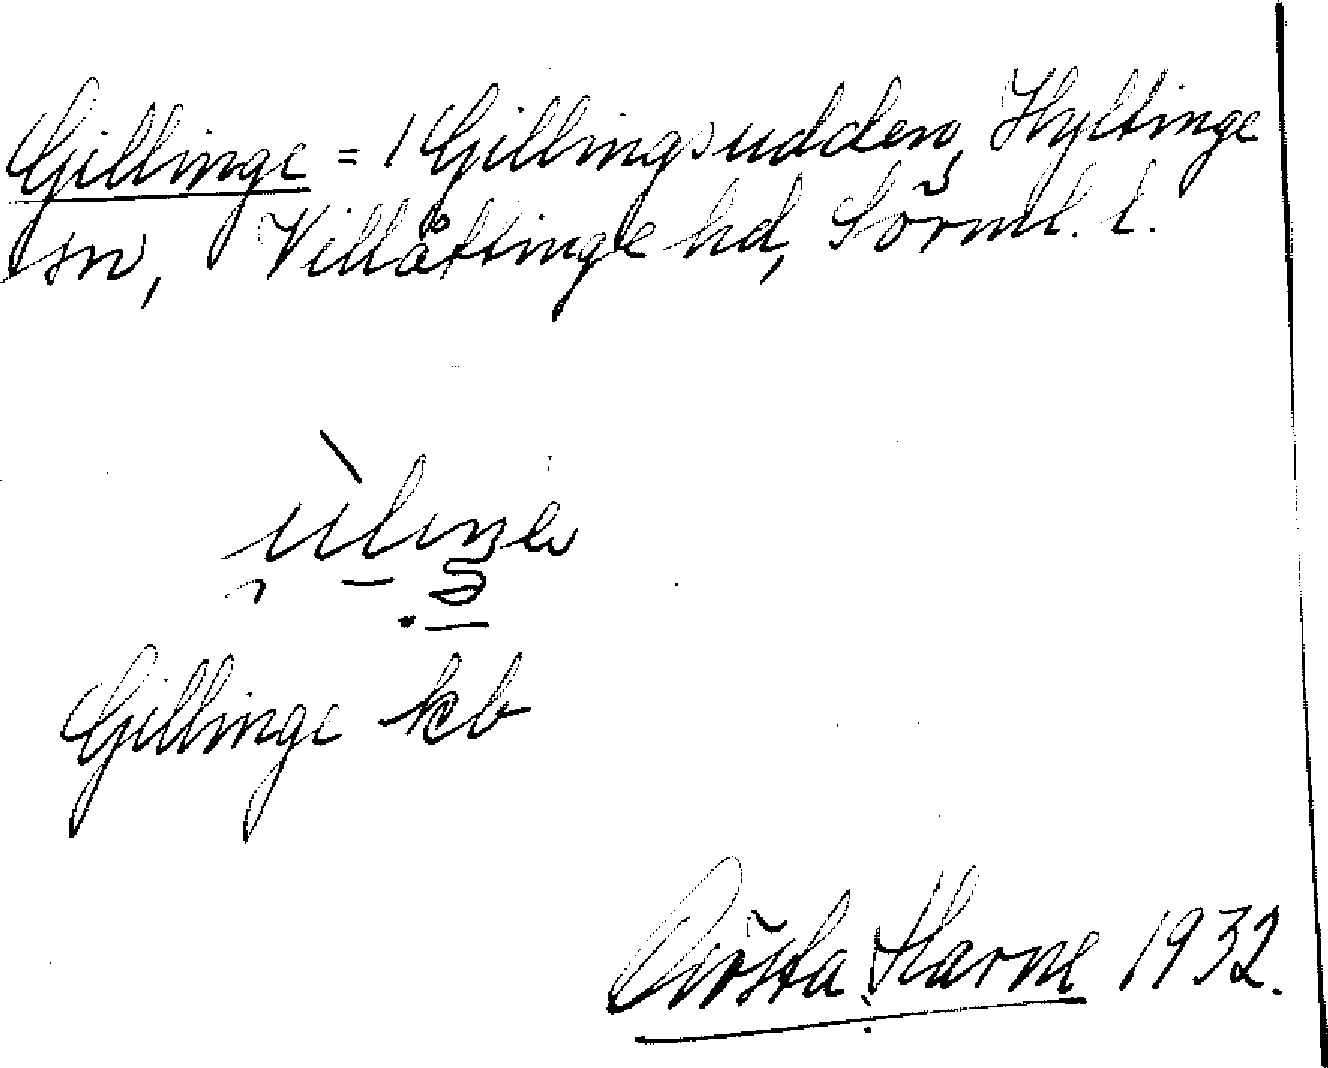 Gillinge = 1 Gillingsudden, Hyltinge
sn, Villåttinge hd, Sörml. l.
Gillinge kb
Harne 1932.